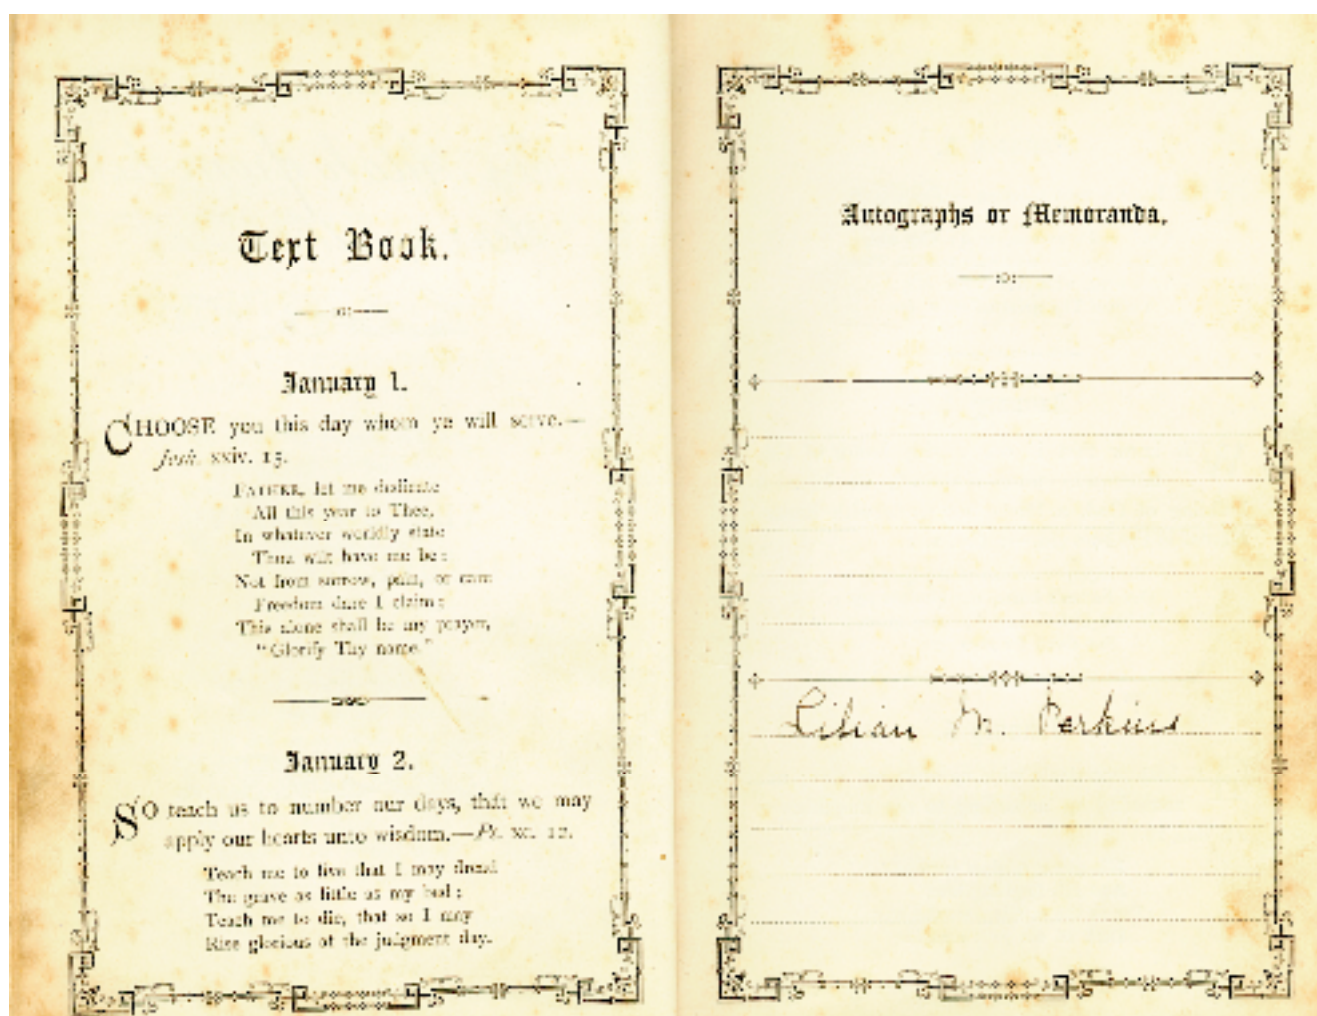 Text Book.
January 1.
CHOOSE you this day whom ye will serve.—
Josh. xxiv. 15.
FATHER, let me dedicate
All this year to Thee,
In whatever worldly state
Thou wilt have me be:
Not from sorrow, pain, or care
Freedom dare I claim:
This alone shall be my prayer,
"Glorify Thy name."
January 2.
SO teach us to number our days, that we may
apply our hearts unto wisdom.—Ps. xc. 12.
Teach me to live that I may dread
The grave as little as my bed:
Teach me to die, that so I may
Rise glorious at the judgment day.
Autographs or Memoranda.
Lilian M. Perkins